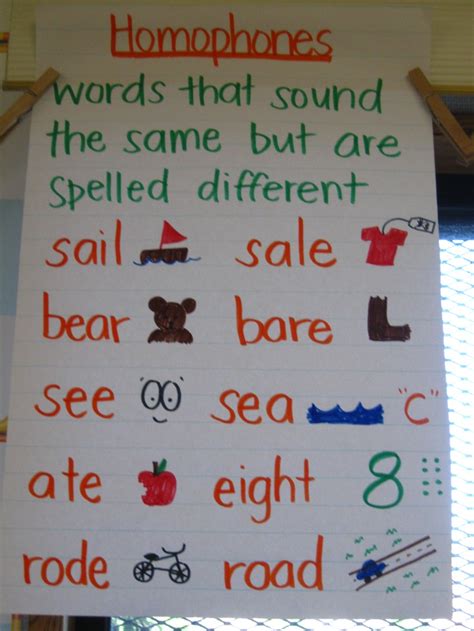 Homophones
words that sound
the same but are
spelled different
sail sale
bear bare
see sea "c"
ate eight 8
rode road